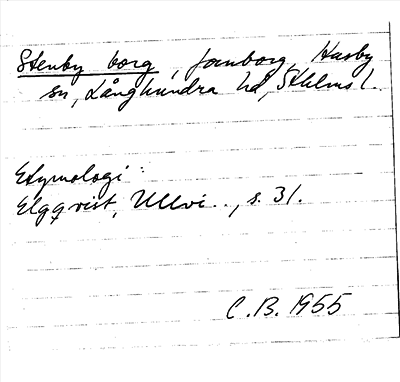 Stenby borg, fornborg, Husby
sn, Långhundra hd, Sthlms l.
Etymologi:
Elgqvist, Ullvi.., s. 31.
C.B. 1955